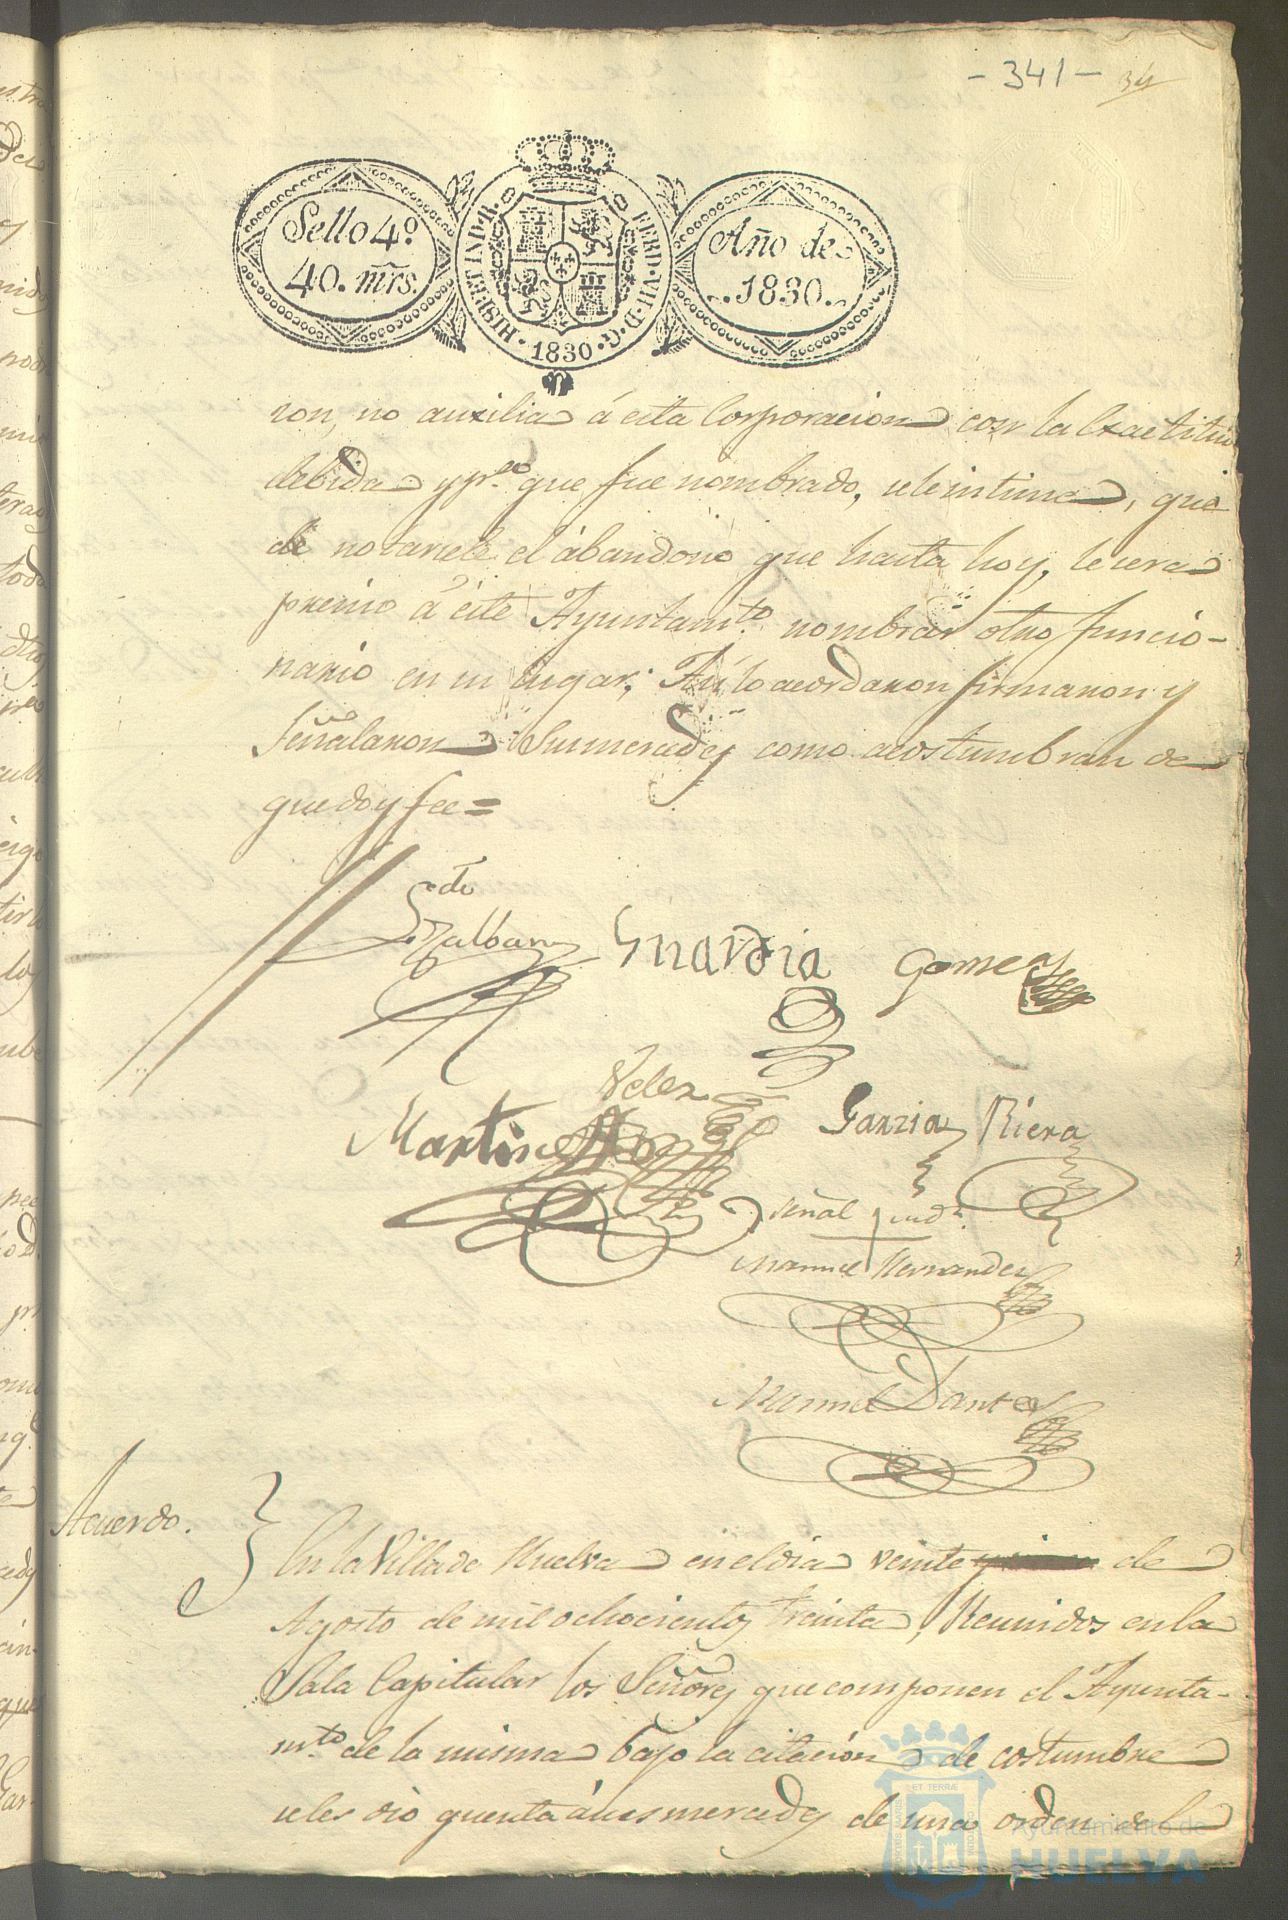 - 341 - 34
Sello 4º
40. mrs.
HISP. ET IND. R. FERD. VII. D. G.
1830
Año de
1830.
ron, no auxilia á esta Corporacion con la Exactitud
debida y pª. que fue nombrado, se le intime, que
de notarsele el abandono que hasta hoy, le sera
presiso á este Ayuntamto. nombrar otro funcio-
nario en su lugar; Asi lo acordaron firmaron y
Señalaron Sus mercedes como acostumbran de
que doy fee =
Guardia Gomez
Velez
Martinez Garzia Riera
señal
Manuel Hernandez
Manuel Dante
Acuerdo.
En la Villa de Huelva en el dia veinte de
Agosto de mil ochocientos treinta, Reunidos en la
Sala Capitular los Señores que componen el Ayunta-
mto. de la misma bajo la citacion de costumbre
se les dio quenta á sus mercedes de una orden del
ET TERRÆ
Ayuntamiento de
HUELVA